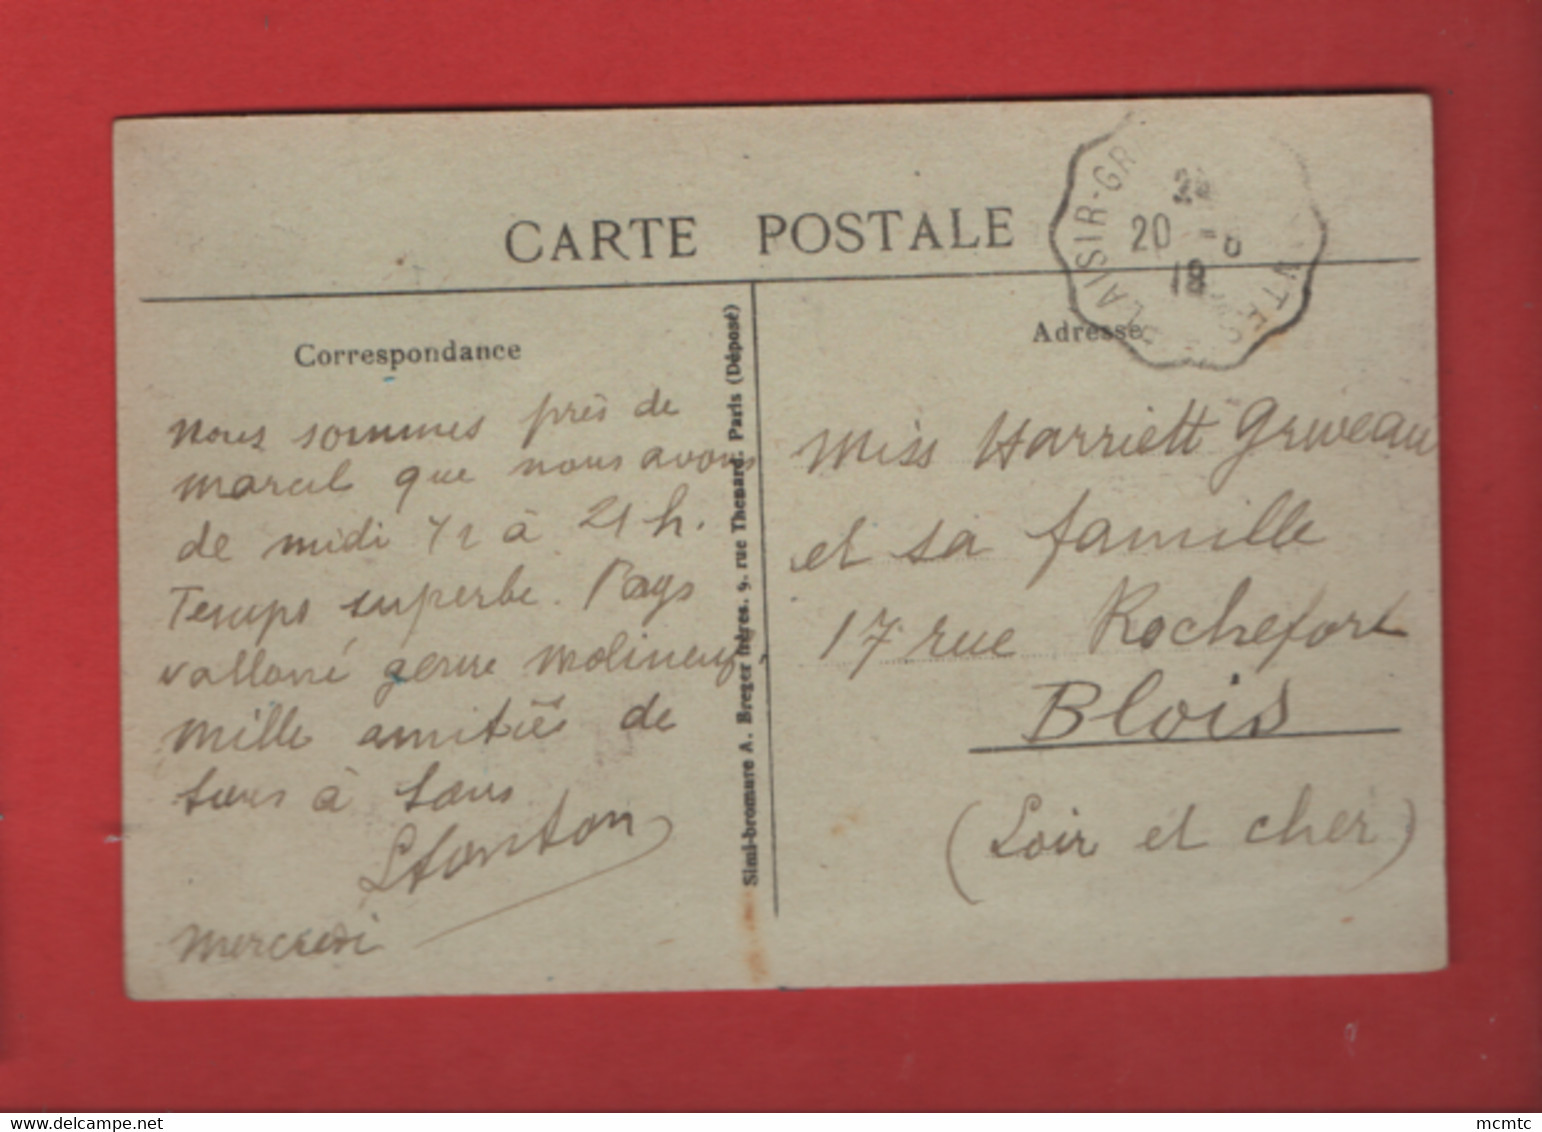 CARTE POSTALE
PLAISIR-GR
20
18
Correspondance
Adresse
Nous sommes près de
Marcel que nous avons
de midi 1/2 à 21 h.
Temps superbe. Pays
vallonné genre Molineuf,
Mille amitiés de
tous à tous
Mercredi
Simi-bromure A. Breger frères. 9, rue Thenard. Paris (Déposé)
Miss Harriett Griveau
et sa famille
17 rue Rochefort
Blois
(Loir et Cher)
mcmtc